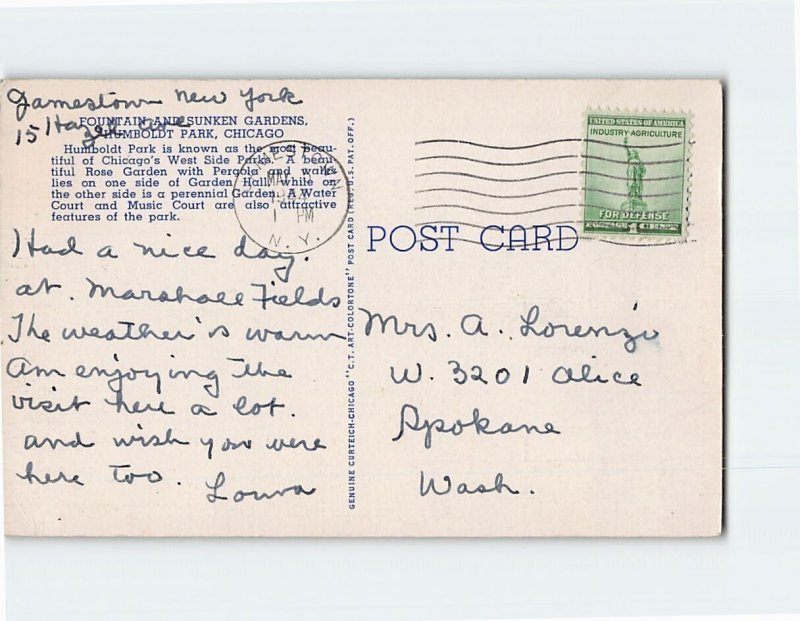 Jamestown New York
15 Hazel ave
FOUNTAIN AND SUNKEN GARDENS,
HUMBOLDT PARK, CHICAGO
Humboldt Park is known as the most beau-
tiful of Chicago's West Side Parks. A beau-
tiful Rose Garden with Pergola and walks
lies on one side of Garden Hall, while on
the other side is a perennial Garden. A Water
Court and Music Court are also attractive
features of the park.
Had a nice day.
at. Marshall Fields
The weather is warm
Am enjoying the
visit here a lot.
and wish you were
here too. Louva
GENUINE CURTEICH-CHICAGO "C.T. ART-COLORTONE" POST CARD (REG. U.S. PAT. OFF.)
JAMESTOWN
1 PM
N. Y.
UNITED STATES OF AMERICA
INDUSTRY-AGRICULTURE
FOR DEFENSE
POSTAGE 1 CENT
POST CARD
Mrs. A. Lorenzo
W. 3201 Alice
Spokane
Wash.